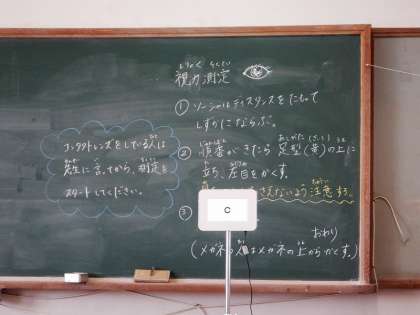 しりょくそくてい
視力測定
① ソーシャルディスタンスをたもって
しずかにならぶ。
② 順番がきたら 足型(青)の上に
立ち、左目をかくす。
さえないよう注意する。
③
おわり
(メガネの人はメガネの上からかくす。)
コンタクトレンズをしている人は
先生に言ってから、測定を
スタートしてください。
C